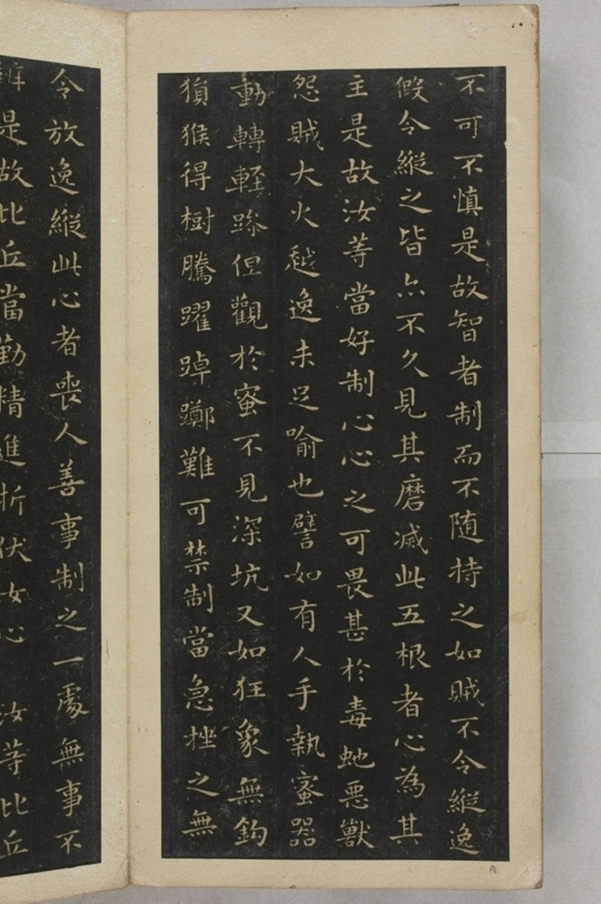 不可不慎是故智者制而不随持之如賊不令縱逸
假令縱之皆亦不久見其磨滅此五根者心為其
主是故汝等當好制心心之可畏甚於毒虵惡獸
怨賊大火越逸未足喻也譬如有人手執蜜器
動轉輕躁但觀於蜜不見深坑又如狂象無鈎
猨猴得樹騰躍踔躑難可禁制當急挫之無
令放逸縱此心者喪人善事制之一處無事不
辦是故比丘當勤精進折伏汝心 汝等比丘